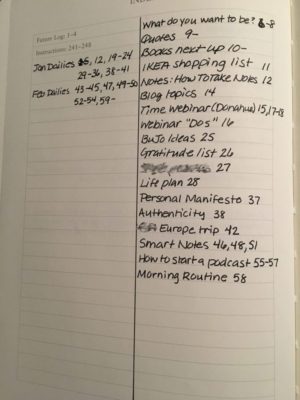 INDEX
Future Log: 1-4
Instructions: 241-248
Jan Dailies 5, 12, 19-24
29-36, 38-41
Feb Dailies 43-45, 47, 49-50
52-54, 59-
What do you want to be? 6-8
Quotes 9-
Books next up 10-
IKEA shopping list 11
Notes: How To Take Notes 12
Blog topics 14
Time Webinar (Donahue) 15, 17-18
Webinar "Dos" 16
BuJo Ideas 25
Gratitude list 26
27
Life plan 28
Personal Manifesto 37
Authenticity 38
Europe trip 42
Smart Notes 46, 48, 51
How to start a podcast 55-57
Morning Routine 58